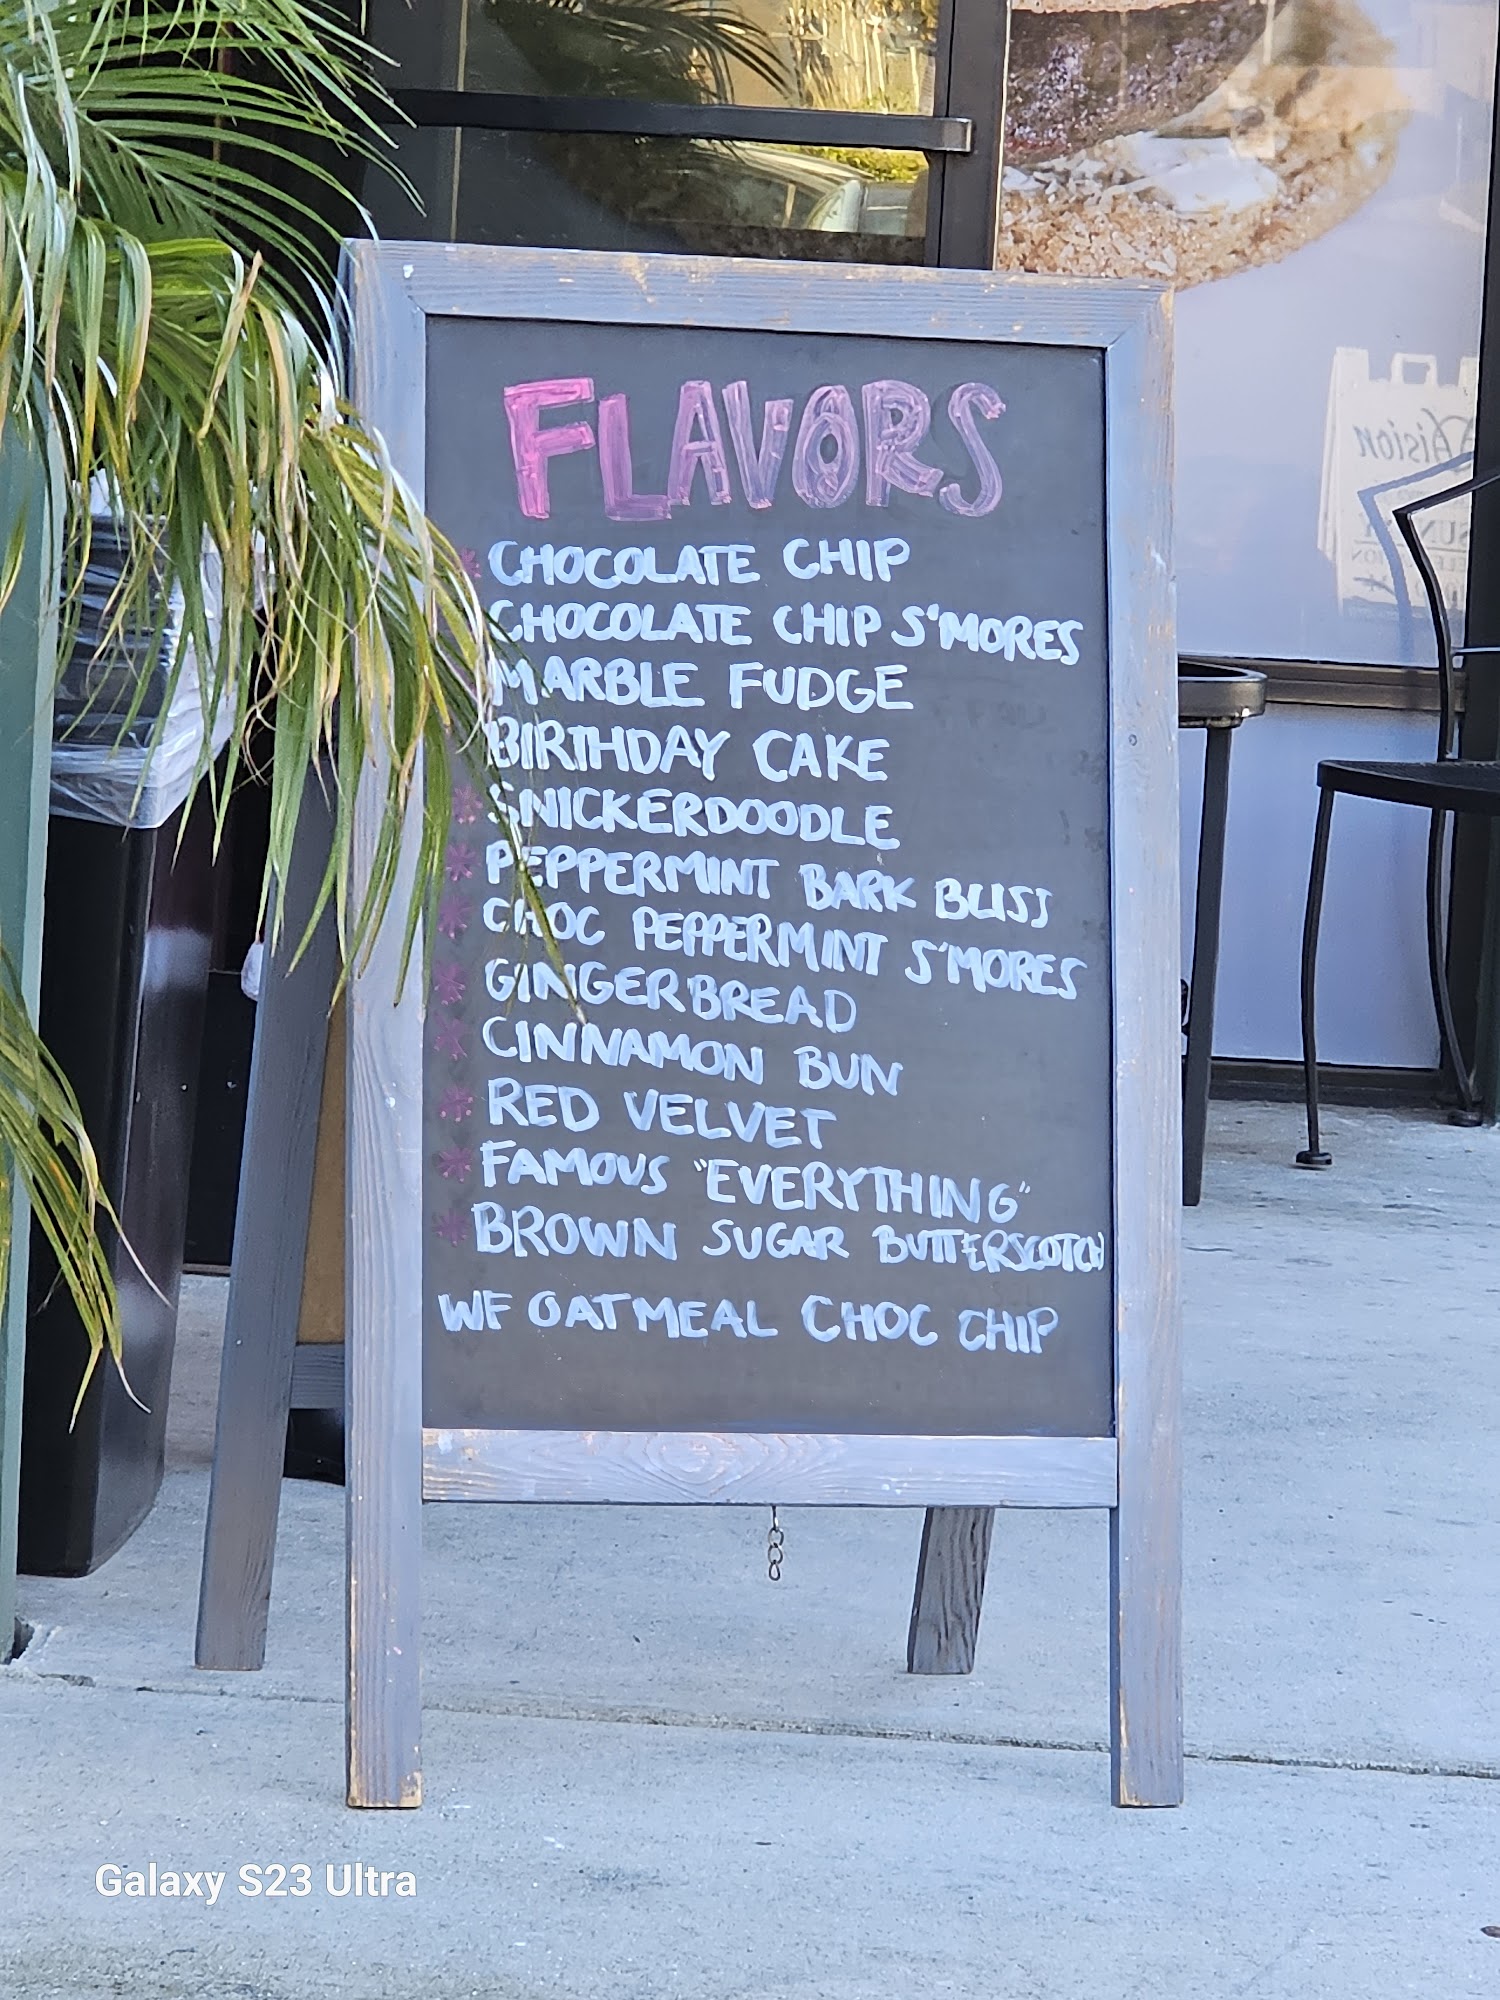 FLAVORS
* CHOCOLATE CHIP
CHOCOLATE CHIP S'MORES
MARBLE FUDGE
BIRTHDAY CAKE
* SNICKERDOODLE
* PEPPERMINT BARK BLISS
* CHOC PEPPERMINT S'MORES
* GINGERBREAD
* CINNAMON BUN
* RED VELVET
* FAMOUS "EVERYTHING"
* BROWN SUGAR BUTTERSCOTCH
WF OATMEAL CHOC CHIP
Galaxy S23 Ultra